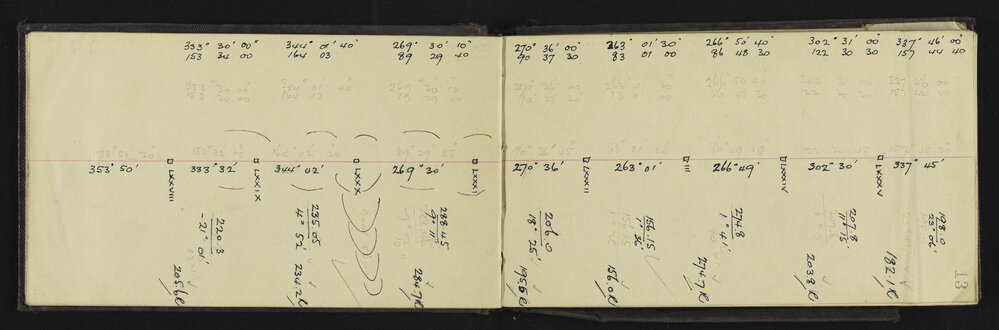 333° 30' 00" 344° 01' 40" 269° 30' 10"
153 34 00 164 03 89 29 40
353° 50' LXXVIII 333° 32' LXXIX 344° 02' LXXX 269° 30' LXXXI
220.3
-21° 01'
205.6
235.05
4° 52'
234.2
288.45
9° 11'
284.7
270° 36' 00" 263° 01' 30" 266° 50' 40" 302° 31' 00" 337° 46' 00"
90 37 30 83 01 00 86 48 30 122 30 30 157 44 40
270° 36' LXXXII 263° 01' III 266° 49' LXXXIV 302° 30' LXXXV 337° 45'
206.0
18° 25'
195.5
156.15
1° 36'
156.0
274.8
1° 41'
274.7
207.8
11° 15'
203.8
198.0
23° 06'
182.1
13